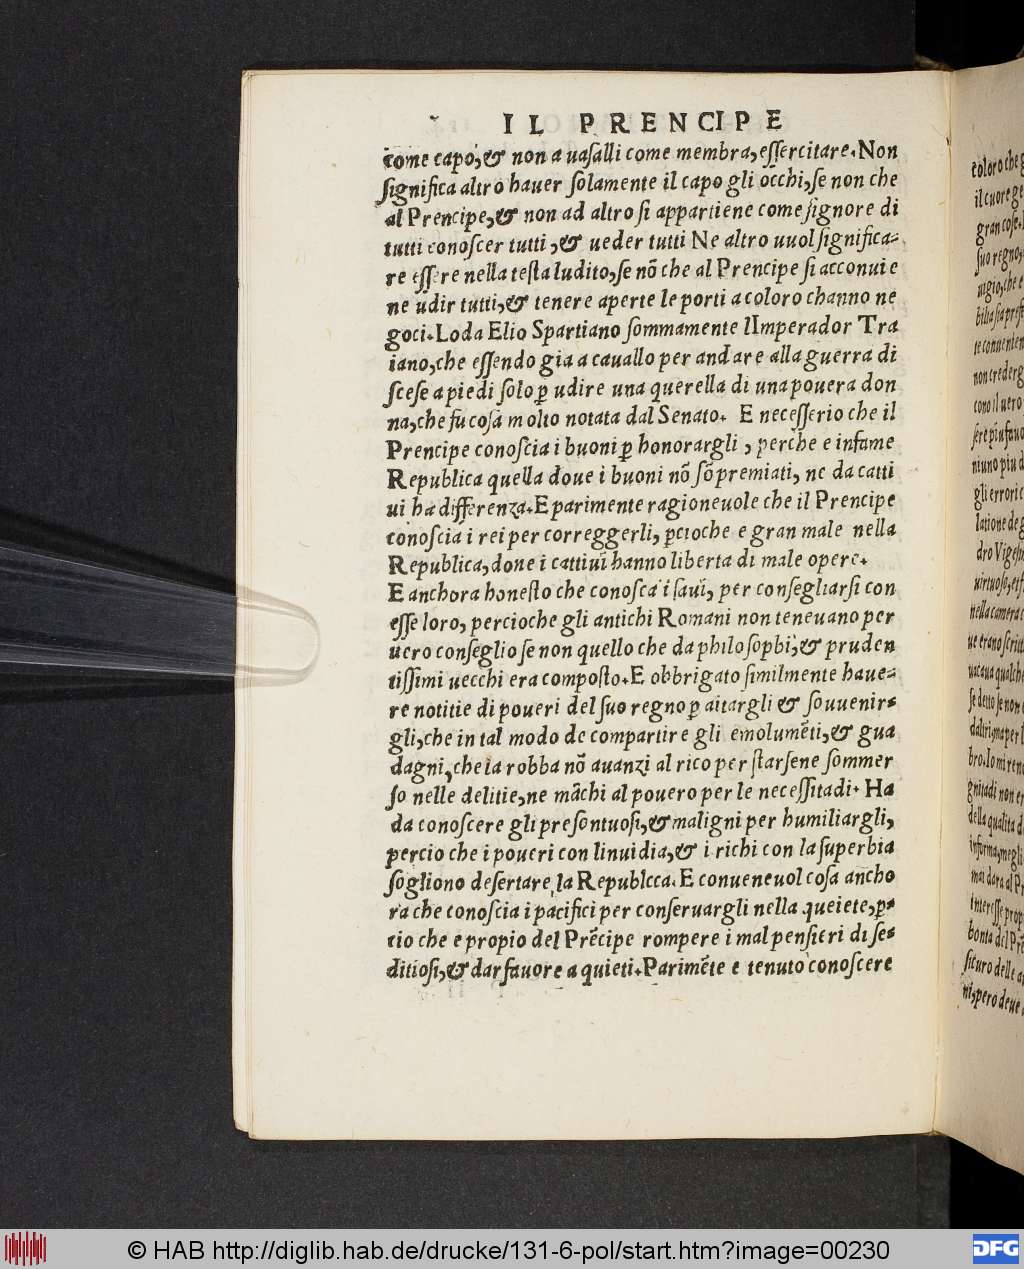 IL PRENCIPE
come capo, & non a uasalli come membra, essercitare. Non
significa altro hauer solamente il capo gli occhi, se non che
al Prencipe, & non ad altro si appartiene come signore di
tutti conoscer tutti, & ueder tutti Ne altro uuol significa-
re essere nella testa ludito, se nõ che al Prencipe si acconuie
ne udir tutti, & tenere aperte le porti a coloro channo ne
goci. Loda Elio Spartiano sommamente lImperador Tra
iano, che essendo gia a cauallo per andare alla guerra di
scese a piedi solo ꝑ udire una querella di una pouera don
na, che fu cosa molto notata dal Senato. E necesserio che il
Prencipe conoscia i buoni ꝑ honorargli, perche e infame
Republica quella doue i buoni nõ sõ premiati, ne da catti
ui ha differenza. E parimente ragioneuole che il Prencipe
conoscia i rei per correggerli, ꝑcioche e gran male nella
Republica, done i cattiui hanno liberta di male opere.
E anchora honesto che conosca i saui, per consegliarsi con
esse loro, percioche gli antichi Romani non teneuano per
uero conseglio se non quello che da philosophi, & pruden
tissimi uecchi era composto. E obbrigato similmente haue-
re notitie di poueri del suo regno ꝑ aitargli & souuenir-
gli, che in tal modo de compartire gli emolumẽti, & gua
dagni, che la robba nõ auanzi al rico per starsene sommer
so nelle delitie, ne mãchi al pouero per le necessitadi. Ha
da conoscere gli presontuosi, & maligni per humiliargli,
percio che i poueri con linuidia, & i richi con la superbia
sogliono desertare la Republcca. E conueneuol cosa ancho
ra che conoscia i pacifici per conseruargli nella queiete, ꝑ-
cio che e propio del Prẽcipe rompere i mal pensieri di se-
ditiosi, & dar fauore a quieti. Parimẽte e tenuto conoscere
coloro che
il cuore
gran cose
suo regno,
te conuenien
cono il uero
niuno piu
gli errori
latione de
nella camera
ue erano
se detto se non
della qualita
mai dara al
bonta del
sicuro delle
ni, pero deue
© HAB http://diglib.hab.de/drucke/131-6-pol/start.htm?image=00230
DFG